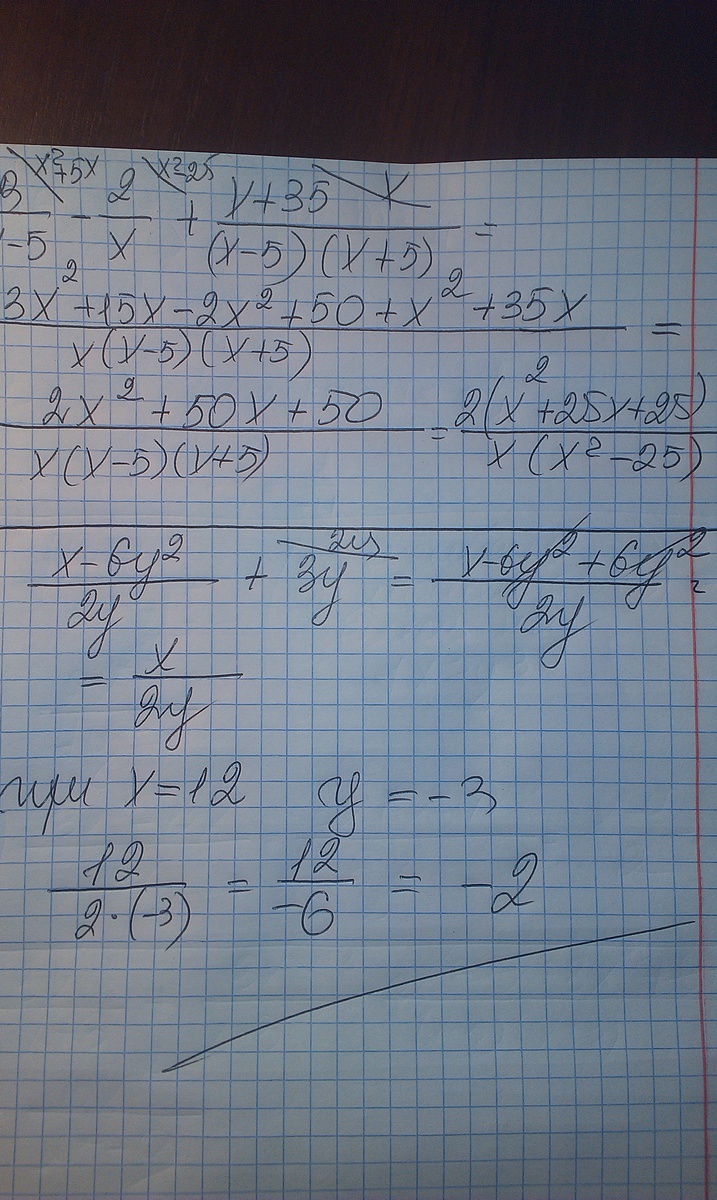 x²+5x x²-25 x
3/x-5 - 2/x + x+35/(x-5)(x+5) =
3x²+15x-2x²+50+x²+35x/x(x-5)(x+5) =
2x²+50x+50/x(x-5)(x+5) = 2(x²+25x+25)/x(x²-25)
2y
x-6y²/2y + 3y = x-6y²+6y²/2y =
= x/2y
при x=12 y=-3
12/2·(-3) = 12/-6 = -2